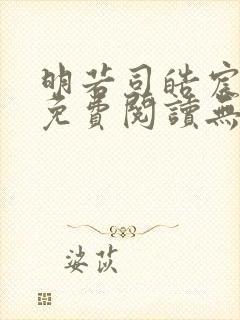 明若司皓宸
免費閱讀無
婆苡